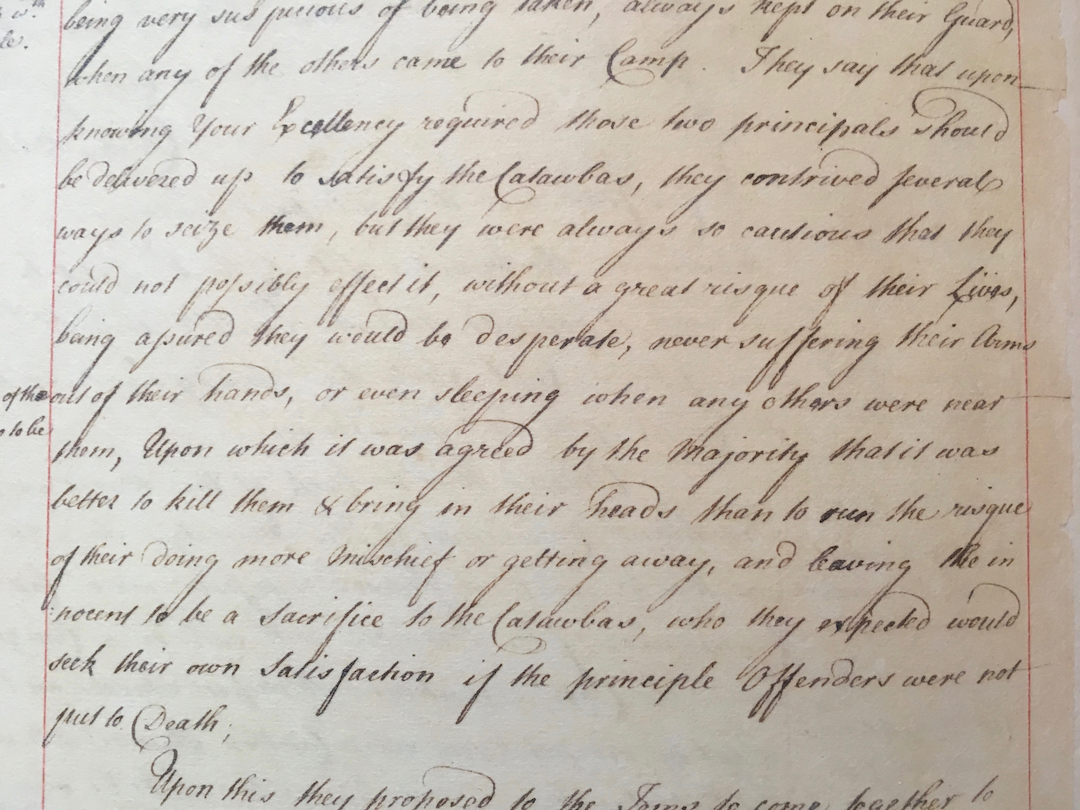 being very suspicious of being taken, always kept on their Guard,
when any of the others came to their Camp. They say that upon
knowing Your Excellency required those two principals should
be delivered up to satisfy the Catawbas, they contrived several
ways to seize them, but they were always so cautious that they
could not possibly effect it, without a great risque of their Lives,
being assured they would be desperate, never suffering their Arms
of the
out of their hands, or even sleeping when any others were near
to be
them, Upon which it was agreed by the Majority that it was
better to kill them & bring in their heads than to run the risque
of their doing more Mischief or getting away, and leaving the in
nocent to be a sacrifice to the Catawbas, who they expected would
seek their own Satisfaction if the principle Offenders were not
put to Death;
Upon this they proposed to the to come together to